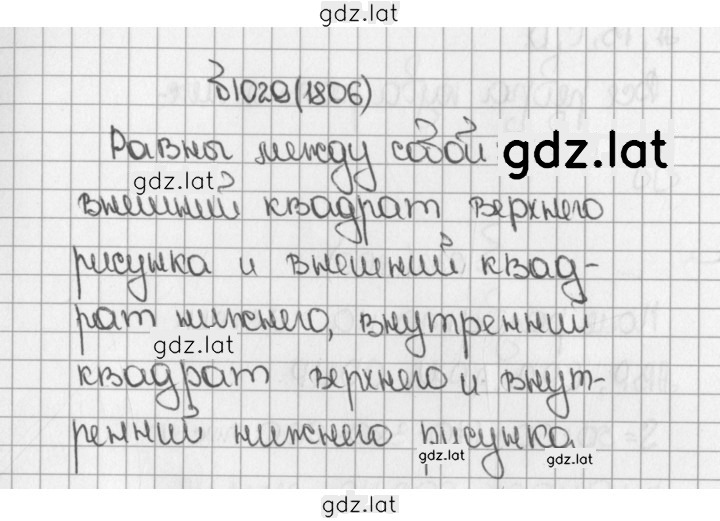 gdz.lat
1020(1806)
Равны между собой
gdz.lat
gdz.lat
внешний квадрат верхнего
рисунка и внешний квад-
рат нижнего, внутренний
gdz.lat
квадрат верхнего и внут-
ренний нижнего рисунка
gdz.lat
gdz.lat
gdz.lat